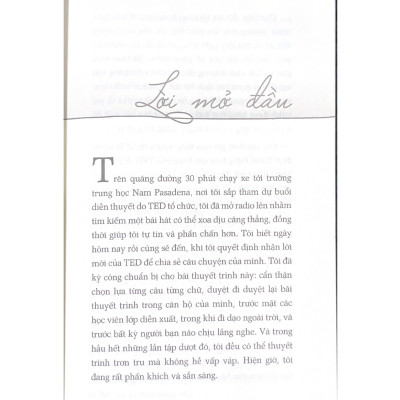 Lời mở đầu
Trên quãng đường 30 phút chạy xe tới trường
trung học Nam Pasadena, nơi tôi sắp tham dự buổi
diễn thuyết do TED tổ chức, tôi đã mở radio lên nhằm
tìm kiếm một bài hát có thể xoa dịu căng thẳng, đồng
thời giúp tôi tự tin và phấn chấn hơn. Tôi biết ngày
hôm nay rồi cũng sẽ đến, khi tôi quyết định nhận lời
mời của TED để chia sẻ câu chuyện của mình. Tôi đã
kỳ công chuẩn bị cho bài thuyết trình này: cẩn thận
chọn lựa từng câu từng chữ, duyệt đi duyệt lại bài
thuyết trình trong căn hộ của mình, trước mặt các
học viên lớp diễn xuất, trong khi đi dạo ngoài trời, và
trước bất kỳ người bạn nào chịu lắng nghe. Và trong
hầu hết những lần tập dượt đó, tôi đều có thể thuyết
trình trơn tru mà không hề vấp váp. Hiện giờ, tôi
đang rất phấn khích và sẵn sàng.